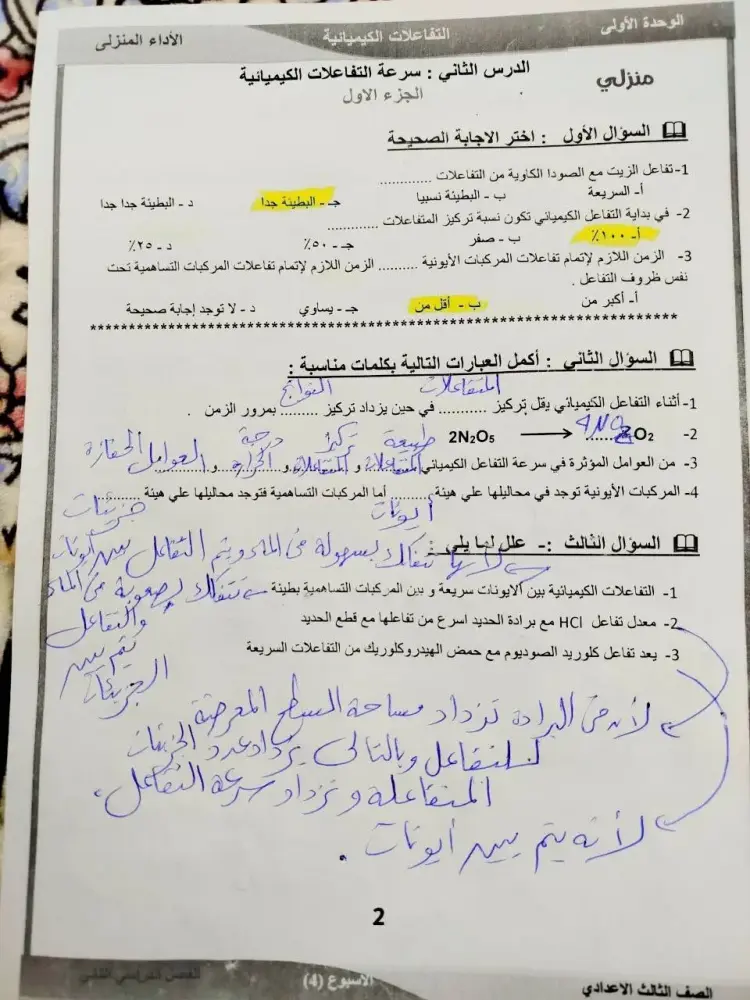 الوحدة الأولى
التفاعلات الكيميائية
الأداء المنزلى
منزلي
الدرس الثاني : سرعة التفاعلات الكيميائية
الجزء الاول
السؤال الأول : اختر الاجابة الصحيحة
1- تفاعل الزيت مع الصودا الكاوية من التفاعلات ............
أ- السريعة ب - البطيئة نسبيا جـ - البطيئة جدا د - البطيئة جدا جدا
2- في بداية التفاعل الكيميائي تكون نسبة تركيز المتفاعلات ............
أ- ١٠٠٪ ب - صفر جـ - ٥٠٪ د - ٢٥٪
3- الزمن اللازم لإتمام تفاعلات المركبات الأيونية ......... الزمن اللازم لإتمام تفاعلات المركبات التساهمية تحت
نفس ظروف التفاعل .
أ- أكبر من ب - أقل من جـ - يساوي د - لا توجد إجابة صحيحة
************************************************
السؤال الثاني : أكمل العبارات التالية بكلمات مناسبة :
المتفاعلات النواتج
1- أثناء التفاعل الكيميائي يقل تركيز ........... في حين يزداد تركيز ......... بمرور الزمن .
2- 2N₂O₅ ⟶ 4NO₂ ....... O₂
طبيعة تركيز درجة
3- من العوامل المؤثرة في سرعة التفاعل الكيميائي المتفاعلات و المتفاعلات و الحرارة و العوامل الحفازة
4- المركبات الأيونية توجد في محاليلها علي هيئة ......... أما المركبات التساهمية فتوجد محاليلها علي هيئة .........
أيونات جزيئات
السؤال الثالث :- علل لما يلي :
لأنها تتفكك بسهولة فى الماء ويتم التفاعل بين أيونات
1- التفاعلات الكيميائية بين الايونات سريعة و بين المركبات التساهمية بطيئة
تتفكك بصعوبة فى الماء
والتفاعل
يتم بين
الجزيئات
2- معدل تفاعل HCl مع برادة الحديد اسرع من تفاعلها مع قطع الحديد
3- يعد تفاعل كلوريد الصوديوم مع حمض الهيدروكلوريك من التفاعلات السريعة
لأنه فى البرادة تزداد مساحة السطح المعرضة
للتفاعل وبالتالى يزداد عدد الجزيئات
المتفاعلة وتزداد سرعة التفاعل .
لأنه يتم بين أيونات .
2
الصف الثالث الاعدادي
الاسبوع (4)
الفصل الدراسي الثاني